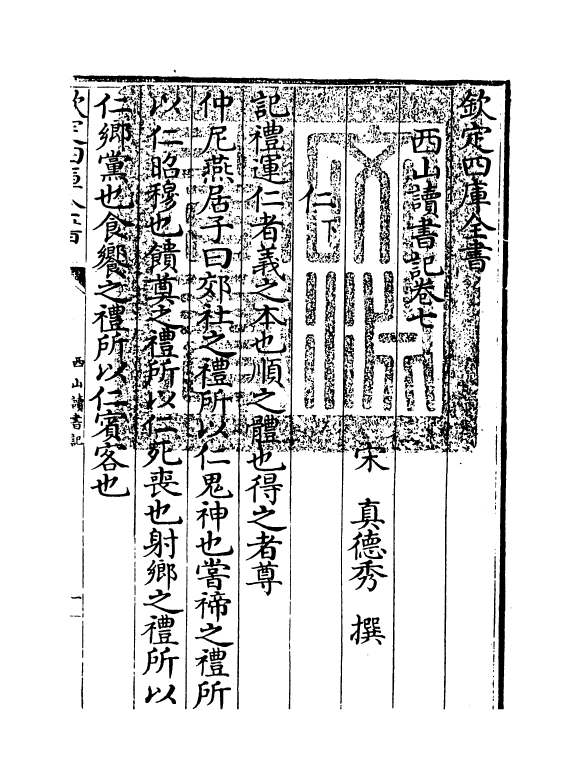 欽定四庫全書
西山讀書記卷七
宋 真德秀 撰
仁下
記禮運仁者義之本也順之體也得之者尊
仲尼燕居子曰郊社之禮所以仁鬼神也嘗禘之禮所
以仁昭穆也饋奠之禮所以仁死喪也射鄉之禮所以
仁鄉黨也食饗之禮所以仁賓客也
西山讀書記
一